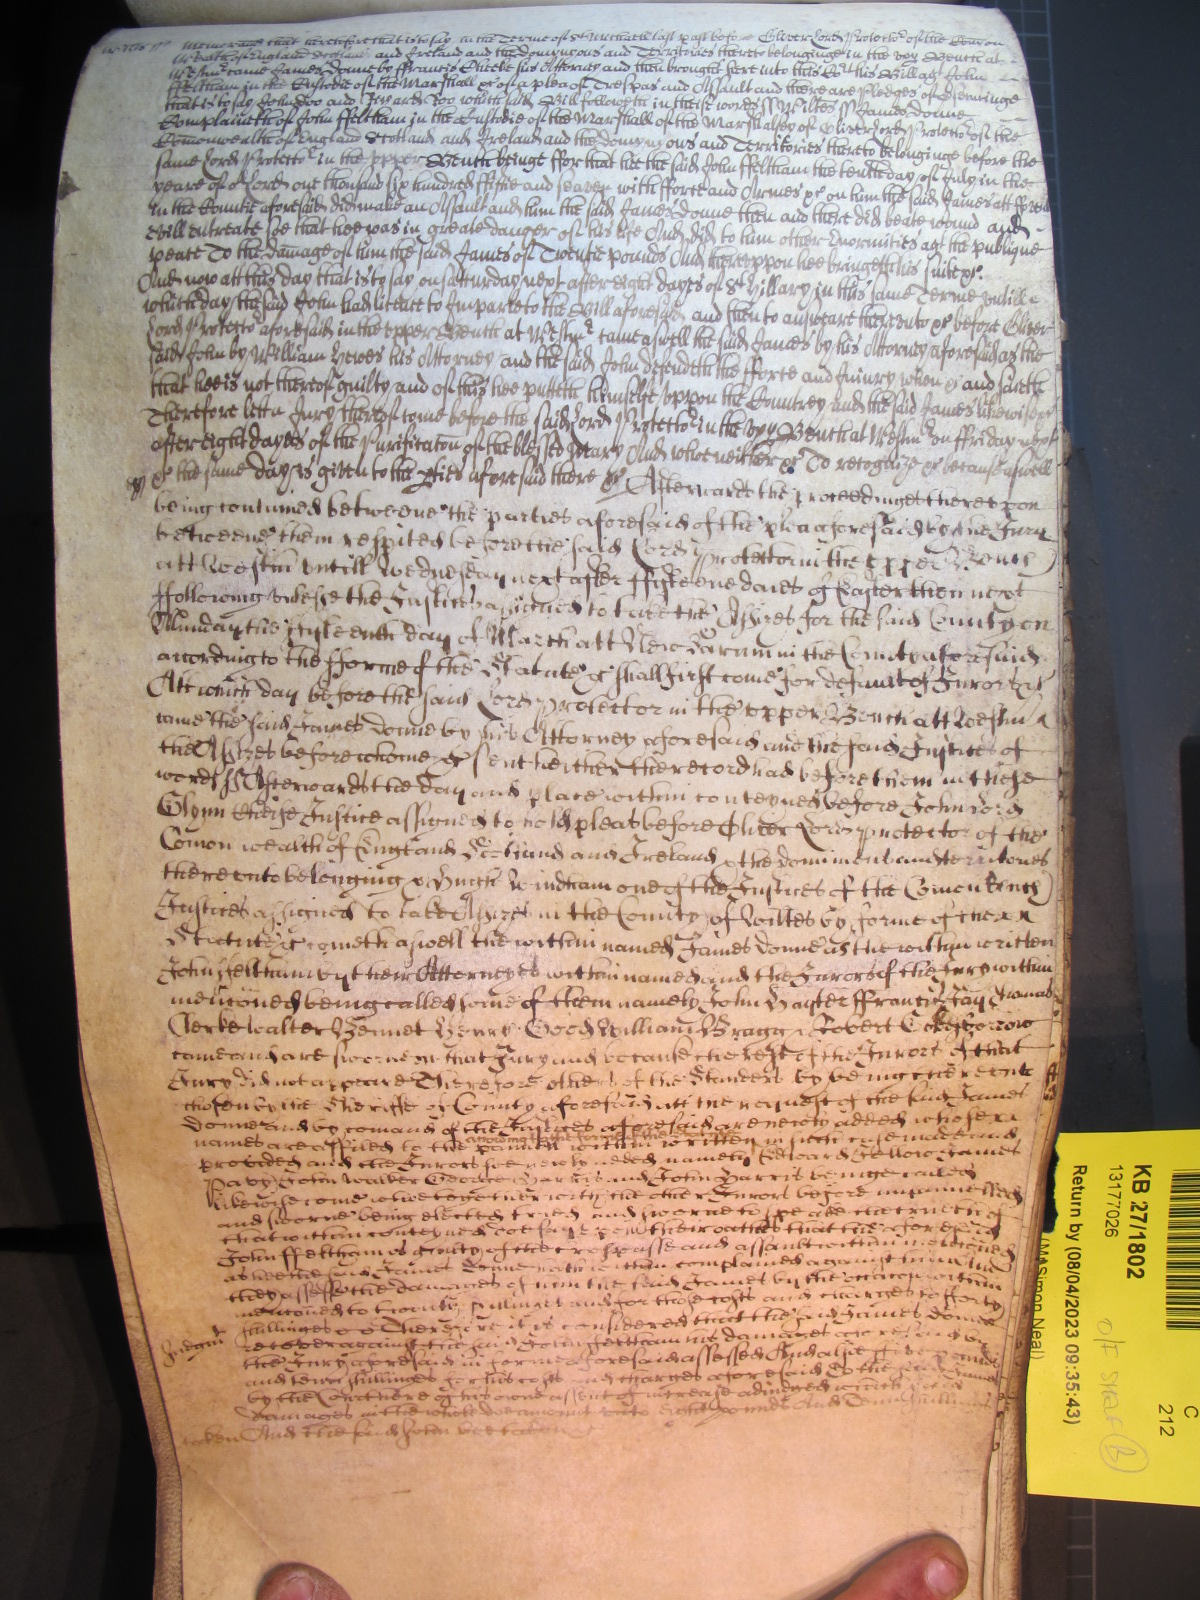 Memorand that heretofore that is to say in the Terme of St Michaell last past before Oliver Lord Protector of the Comon
wealth of England Scotland and Ireland and the Domynyons and Territories thereto belonginge in the upp Bench at
Westmr came James Donne by ffrancis his Attorney and then brought here into this Court his Bill agt John
ffeltham in the Custodie of the Marshall &c of a plea of Trespas and Assault and there are Pledges of prosecutinge
that is to say John Doo and Richard Roo which said Bill followeth in theise words ss Wiltes ss James Donne
Complayneth of John ffeltham in the Custodie of the Marshall of the Marshalsey of Oliver Lord Protector of the
Comonwealth of England Scotland and Ireland and the Domynyons and Territories thereto belonginge before the
same Lord Protector in the upper Bench beinge ffor that hee the said John ffeltham the tenth day of July in the
yeare of or Lord one thousand six hundred fiftie and seaven with fforce and Armes &c on him the said James att
in the Countie aforesaid did make an Assault and him the said James Donne then and there did beate wound and
evill entreate soe that hee was in greate danger of his life And did to him other Enormities agt the publique
peace To the damage of him the said James of Twentie pounds And thereuppon hee bringeth his suite &c
And now att this day that is to say on saturday next after eight dayes of St Hillary in this same Terme untill
which day the said John had licence to Imparle to the Bill aforesaid and then to answeare thereunto &c before Oliver
Lord Protector aforesaid in the upper Bench at Westmr came aswell the said James by his Attorney aforesaid as the
said John by William his Attorney and the said John defendeth the fforce and Injury when &c and saieth
that hee is not thereof guilty and of this hee putteth himselfe uppon the Countrey and the said James likewise &c
Therefore lett a Jury thereof come before the said Lord Protector in the upp Bench at Westmr on ffriday next
after eight dayes of the Purificaton of the blessed Mary And who neither &c To recognize &c because aswell
&c the same day is given to the pties aforesaid there &c Afterwards the proceedinges thereupon
being continued betweene the parties aforesaid of the plea aforesaid by the Jury
betweene them respited before the said Lord Protector in the upper Bench
att Westm untill Wednesday next after fifteene daies of Easter then next
ffollowing unlesse the Justices assigned to take the Assizes for the said County on
Munday the day of March att New Sarum in the County aforesaid
according to the fforme of the Statute &c shall first come for default of Jurors &c
Att which day before the said Lord Protector in the upper Bench att Westm
came the said James Donne by his Attorney aforesaid and the said Justices of
the Assizes before whome &c sent heither the record had before them in these
words ss Afterwards the day and place within conteyned before John Lord
Glynn Cheife Justice assigned to hold pleas before Oliver Lord Protector of the
Comon wealth of England Scotland and Ireland & the dominions and territories
thereunto belonging & Hugh Windham one of the Justices of the Comon Bench
Justices assigned to take Assizes in the County of Wiltes by forme of the
Statute &c cometh aswell the within named James Donne as the within written
John ffeltham by their Attorneyes within named and the Jurors of the Jury within
mentioned being called some of them namely John ffrancis Thomas
Clerke Walter Bennet Henry Good William Bragg Robert
came and are sworne on that Jury and because the rest of the Jurors of that
Jury did not appeare Therefore others of the Standers by being thereunto
chosen by the Sheriffe of County aforesaid att the request of the said James
Donne and by comand of the Justices aforesaid are newly added whose
according to the forme of the
names are affiled to the pannell within written in such case made and
provided and the Jurors soe newly added namely Edward James
John Walter George and John Harris beinge called
likewise come who together with the other Jurors before
and sworne being elected tryed and sworne to speake the truth of
that within conteyned doe say upon their oathes that the aforesaid
John ffeltham is guilty of the trespasse and assault within mentioned
as hee the said James Donne within complaines against him And
they assesse the damages of him the said James by the occasion within
mentioned to twenty shillinges and for those costs and charges to forty
shillinges &c Therefore it is considered that the said James Donne
Judgmt
recover against the said John ffeltham his damages aforesaid by
the Jury aforesaid in forme aforesaid assessed And alsoe five pounds
and tenn shillinges for his costs and charges aforesaid To the said James
by the Court here of his owne assent of increase adiudged which said
damages in the whole doe amount unto eight pounds And tenn shillings
And the said John
KB 27/1802
13177026
C
212
O/F Shelf (2)
Return by (08/04/2023 09:35:43)
(MASimon Neal)